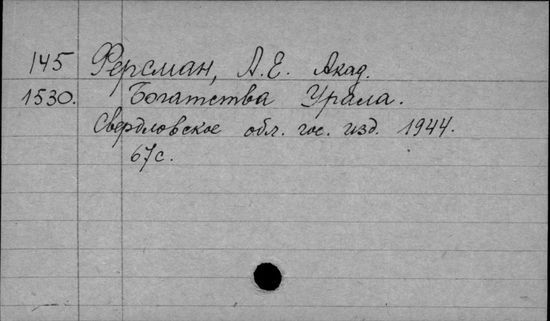 145 Ферсман, А.Е. Акад.
1530. Богатства Урала.
Свердловское обл. гос. изд. 1944.
67с.